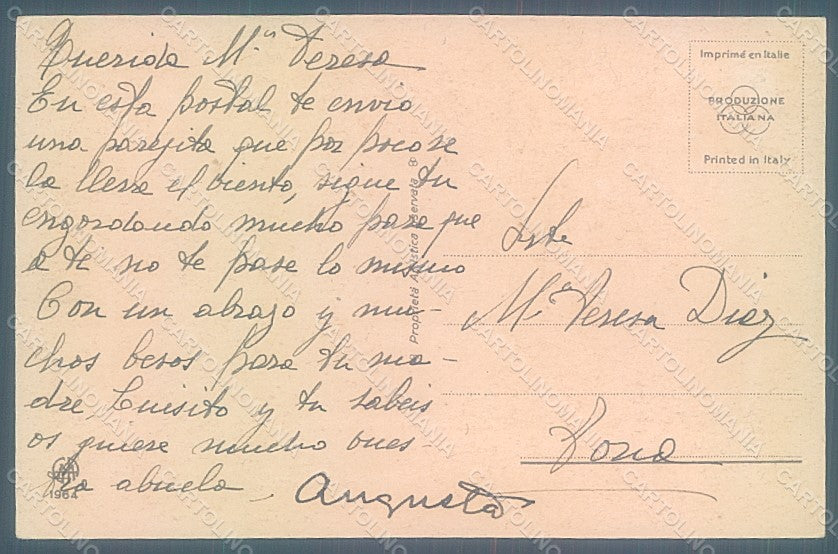 Querida Mª Teresa
En esta postal te envio
una parejita que por poco se
la lleva el viento, sigue tu
engordando mucho para que
a te no te pase lo mismo
Con un abrazo y mu-
chos besos para tu ma-
dre Luisito y tu sabeis
os quiere mucho vues-
tra abuela - Augusta
1964
Proprietà Artistica Riservata
Imprimé en Italie
PRODUZIONE
ITALIANA
Printed in Italy
Mª Teresa Diaz
CARTOLINOMANIA